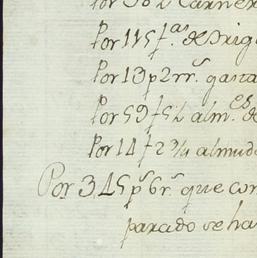 Por 382 Carner
Por 115 f.as de trig
Por 13 p 2 rr.s gana
Por 59 f 5 ½ alm.es de
Por 14 f 2 ¾ almud
Por 345 p.s 6 r.s que con
parado se ha